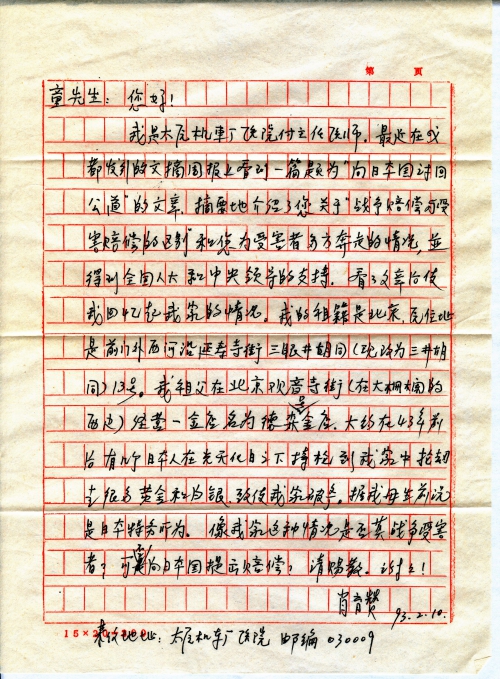 第 页
童先生：您好！
我是太原机车厂医院付主任医师。最近在成
都发行的文摘周报上看到一篇题为"向日本国讨回
公道"的文章，摘要地介绍了您关于"战争赔偿与受
害赔偿的区别"和您为受害者多方奔走的情况，並
得到全国人大和中央领导的支持。看了文章后使
我回忆起我家的情况。我的祖籍是北京，住址
是前门外西河沿延寿寺街三眼井胡同(现改为三井胡
同)13号。我祖父在北京观音寺街(在大栅栏的
西边)经营一金店名为德 金店。大约在43年前
后有几个日本人在光天化日之下持枪到我家中抢劫
走很多黄金和白银，致使我家破产。据我母生前说
是日本特务所为。像我家这种情况是否算战争受害
者？可否向日本国提出赔偿？请赐教。谢谢！
肖育赞
93.2.10.
15×20=300
来信地址：太原机车厂医院 邮编 030009